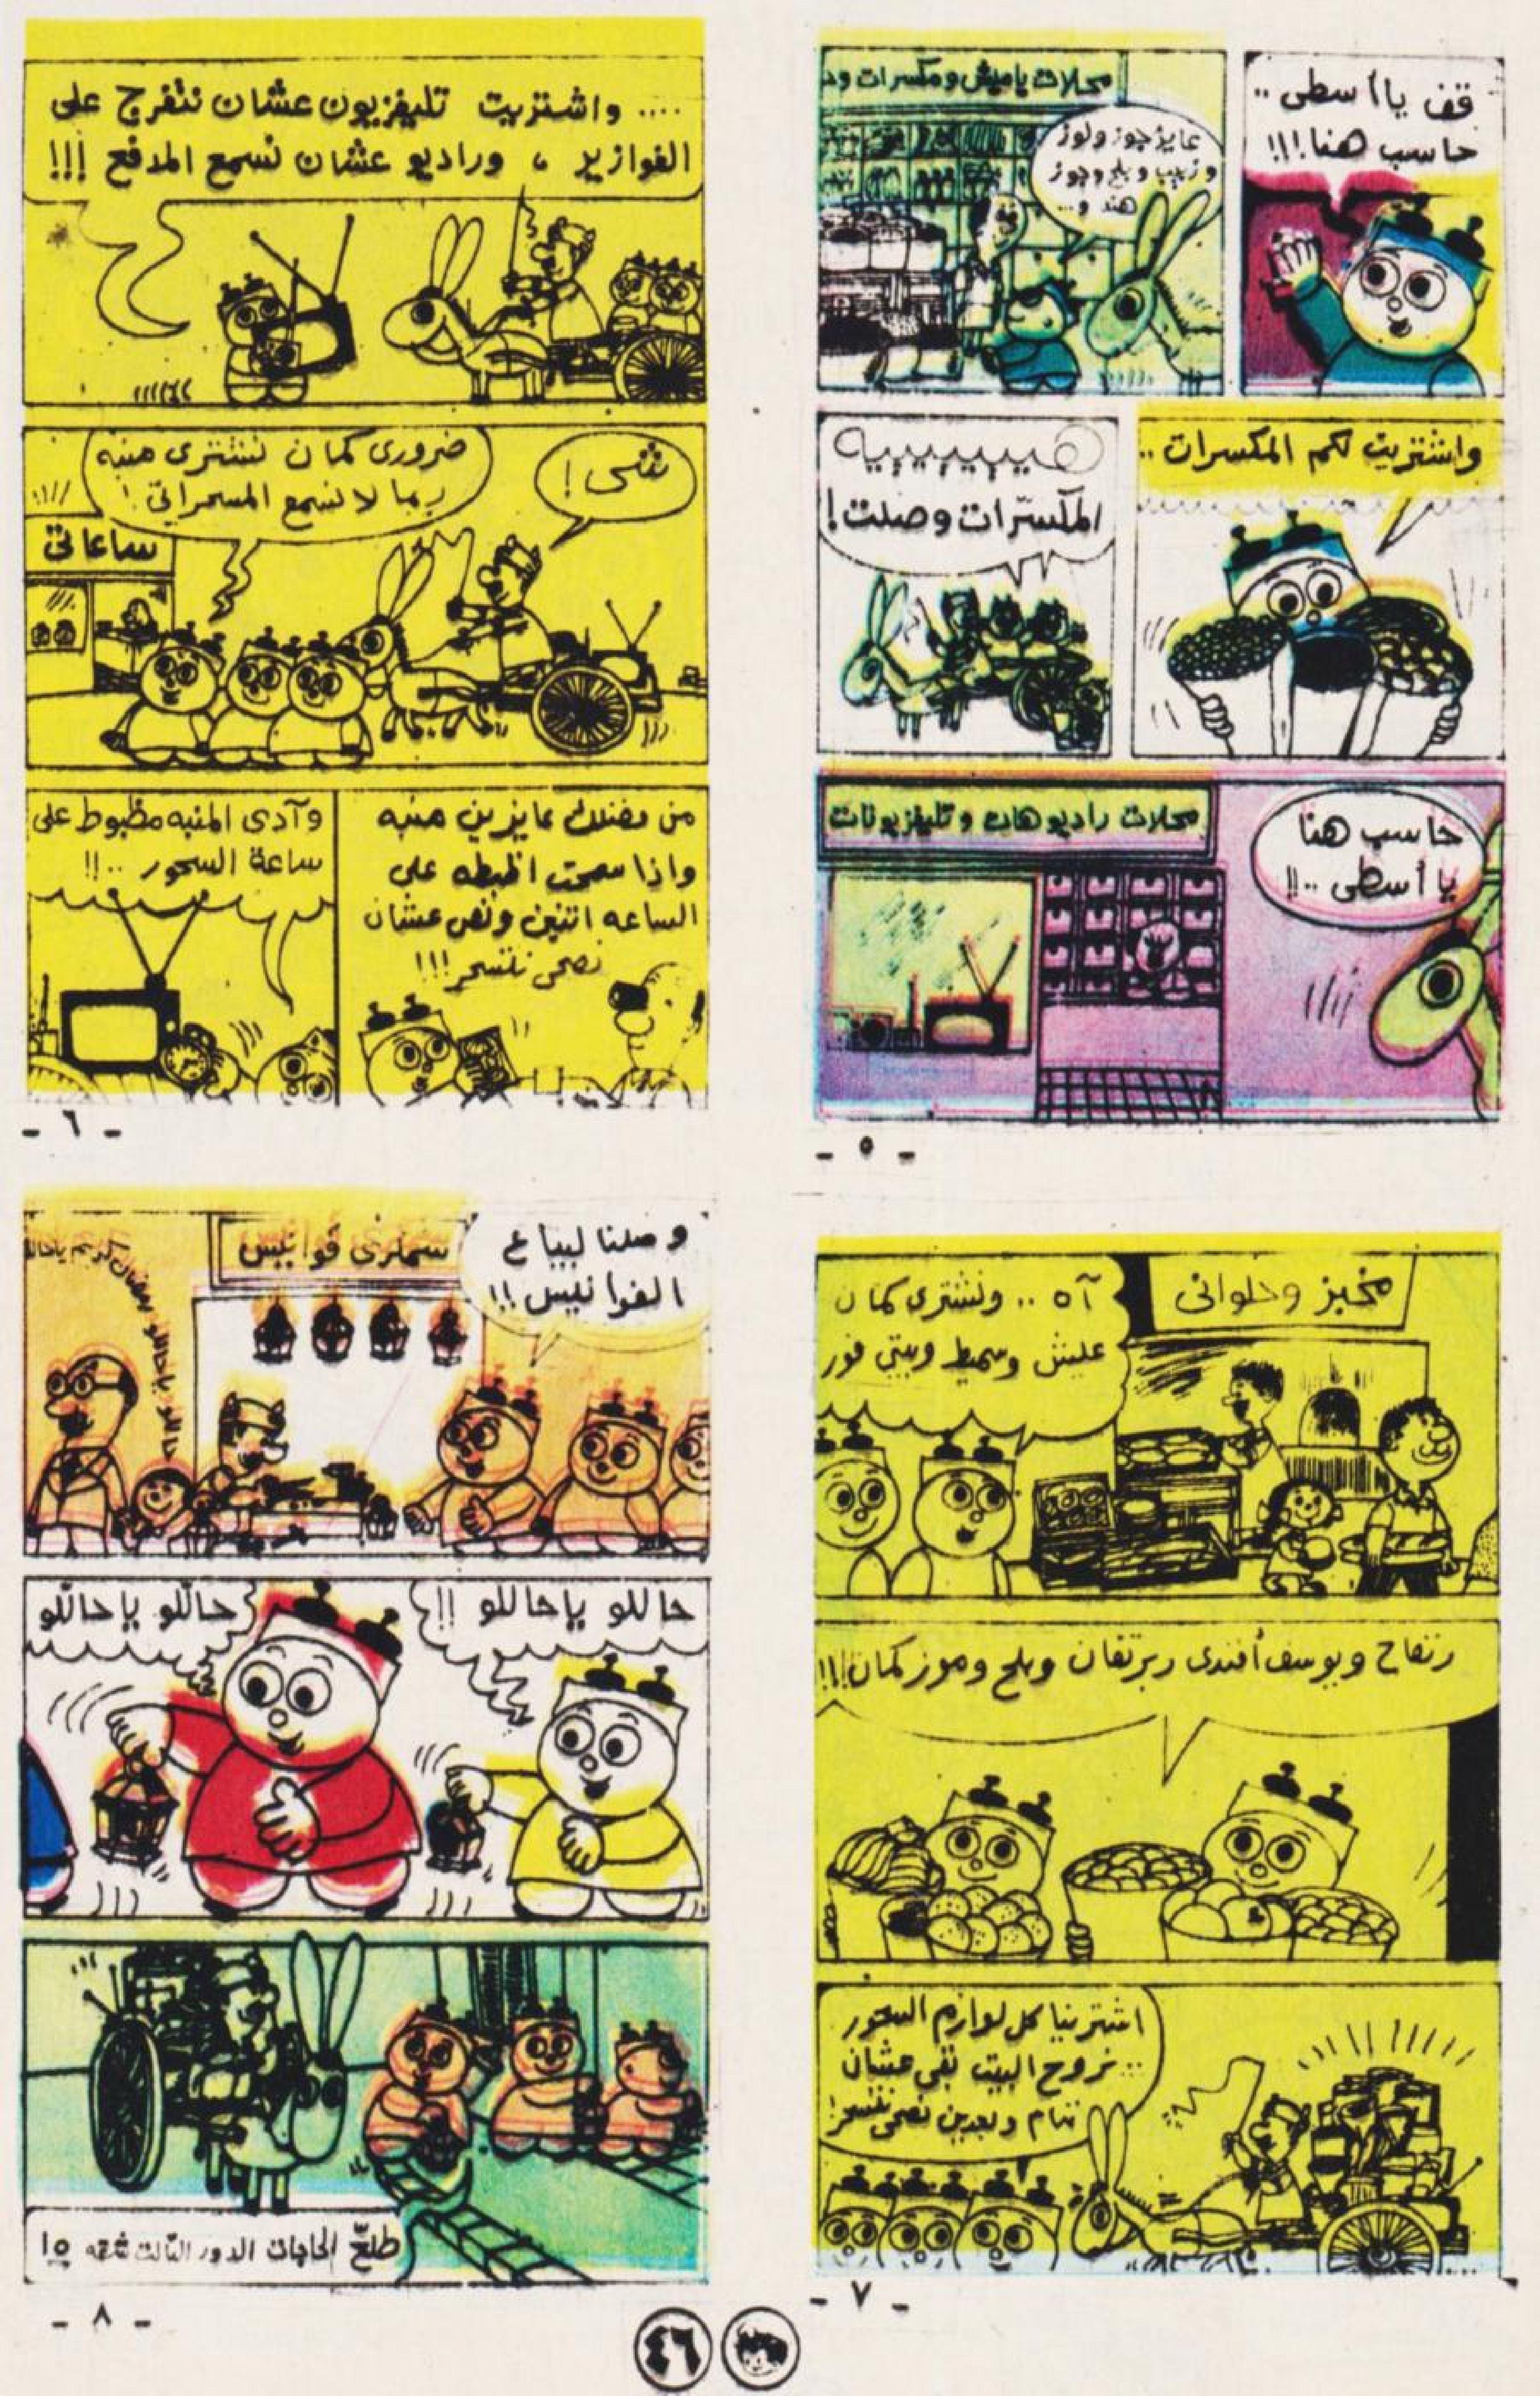 محلات ياميش ومكسرات ود
قف يا أسطى ..
حاسب هنا !!!
عايز جوز ولوز
وزبيب وبلح وجوز
هند و...
واشتريت لكم المكسرات ..
هيييييييه
المكسّرات وصلت !
حاسب هنا
يا أسطى ..!!
محلات راديوهات وتليفزيونات
- ٥ -
.... واشتريت تليفزيون عشان نتفرج على
الفوازير ، وراديو عشان نسمع المدفع !!!
شى !
ضرورى كمان نشترى منبه
ربما لا نسمع المسحراتى !
ساعاتى
من فضلك عايزين منبه
واذا سمحت اظبطه على
الساعه اتنين ونص عشان
نصحى نتسحر !!!
وآدى المنبه مظبوط على
ساعة السحور ..!!
- ٦ -
مخبز وحلوانى
آه .. ونشترى كمان
عليش وسميط وبيتى فور
وتفاح ويوسف أفندى وبرتقان وبلح وموز كمان !!!
اشترينا كل لوازم السحور
.. نروح البيت بقى عشان
ننام وبعدين نصحى نتسحر !
- ٧ -
وصلنا لبياع
الفوانيس !!
سمكرى فوانيس
حاللو ياحاللو رمضان كريم ياحاللو
حاللو ياحاللو !!
حاللو ياحاللو
طلّع الحاجات الدور التالت شقه ١٥
- ٨ -
٤٦